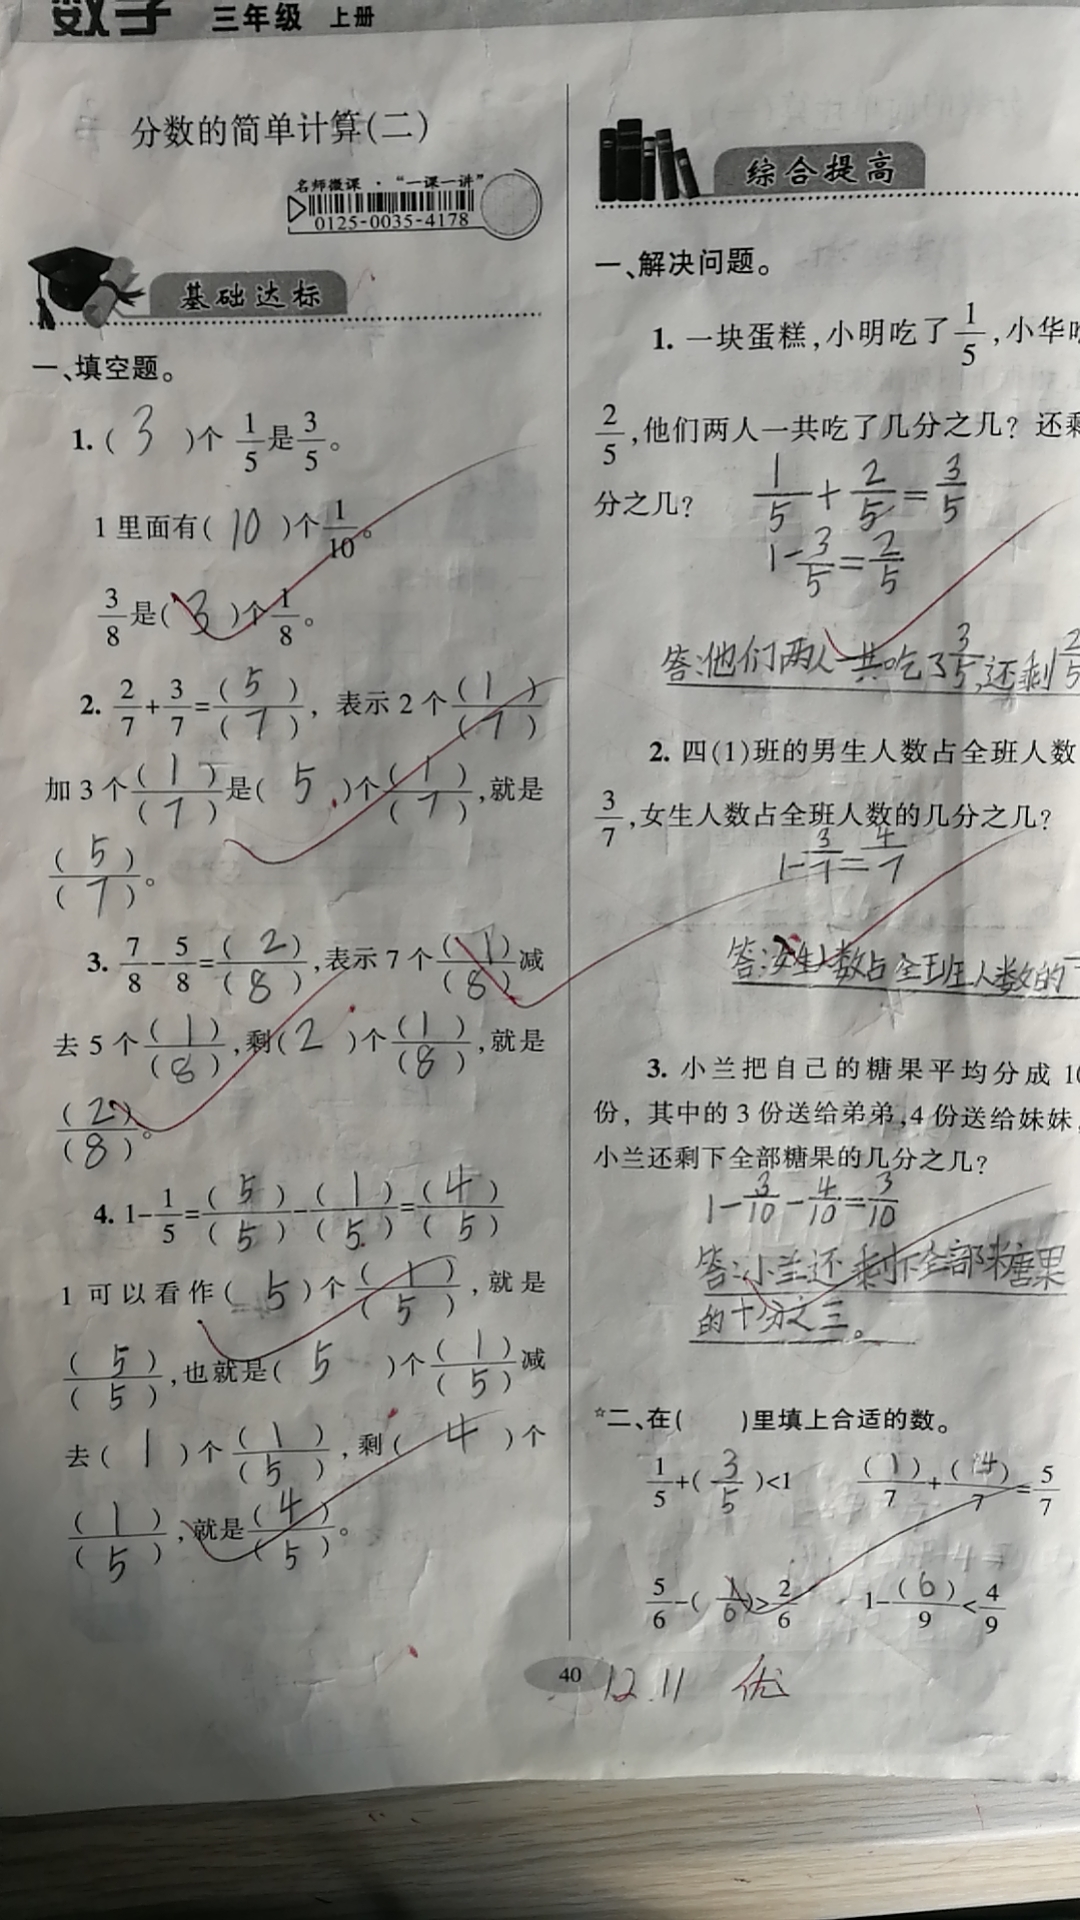 数学 三年级 上册
分数的简单计算(二)
名师微课·“一课一讲”
0125-0035-4178
基础达标
一、填空题。
1.( 3 )个 1/5 是 3/5。
1里面有( 10 )个 1/10。
3/8 是( 3 )个 1/8。
2. 2/7+3/7=(5)/(7), 表示2个(1)/(7)
加3个(1)/(7)是( 5 )个(1)/(7),就是
(5)/(7)。
3. 7/8-5/8=(2)/(8),表示7个(1)/(8)减
去5个(1)/(8),剩( 2 )个(1)/(8),就是
(2)/(8)。
4. 1-1/5=(5)/(5)-(1)/(5)=(4)/(5)
1可以看作( 5 )个(1)/(5),就是
(5)/(5),也就是( 5 )个(1)/(5)减
去( 1 )个(1)/(5),剩( 4 )个
(1)/(5),就是(4)/(5)。
综合提高
一、解决问题。
1. 一块蛋糕,小明吃了 1/5,小华
2/5,他们两人一共吃了几分之几? 还剩
分之几?
1/5+2/5=3/5
1-3/5=2/5
答:他们两人一共吃了3/5,还剩2/5
2. 四(1)班的男生人数占全班人数
3/7,女生人数占全班人数的几分之几?
1-3/7=4/7
答:女生人数占全班人数的
3. 小兰把自己的糖果平均分成10
份, 其中的3份送给弟弟,4份送给妹妹,
小兰还剩下全部糖果的几分之几?
1-3/10-4/10=3/10
答:小兰还剩下全部糖果
的十分之三。
☆二、在( )里填上合适的数。
1/5+( 3/5 )<1 (1)/7+(4)/7=5/7
5/6-( 1/6 )>2/6 1-(6)/9<4/9
40 12.11 优